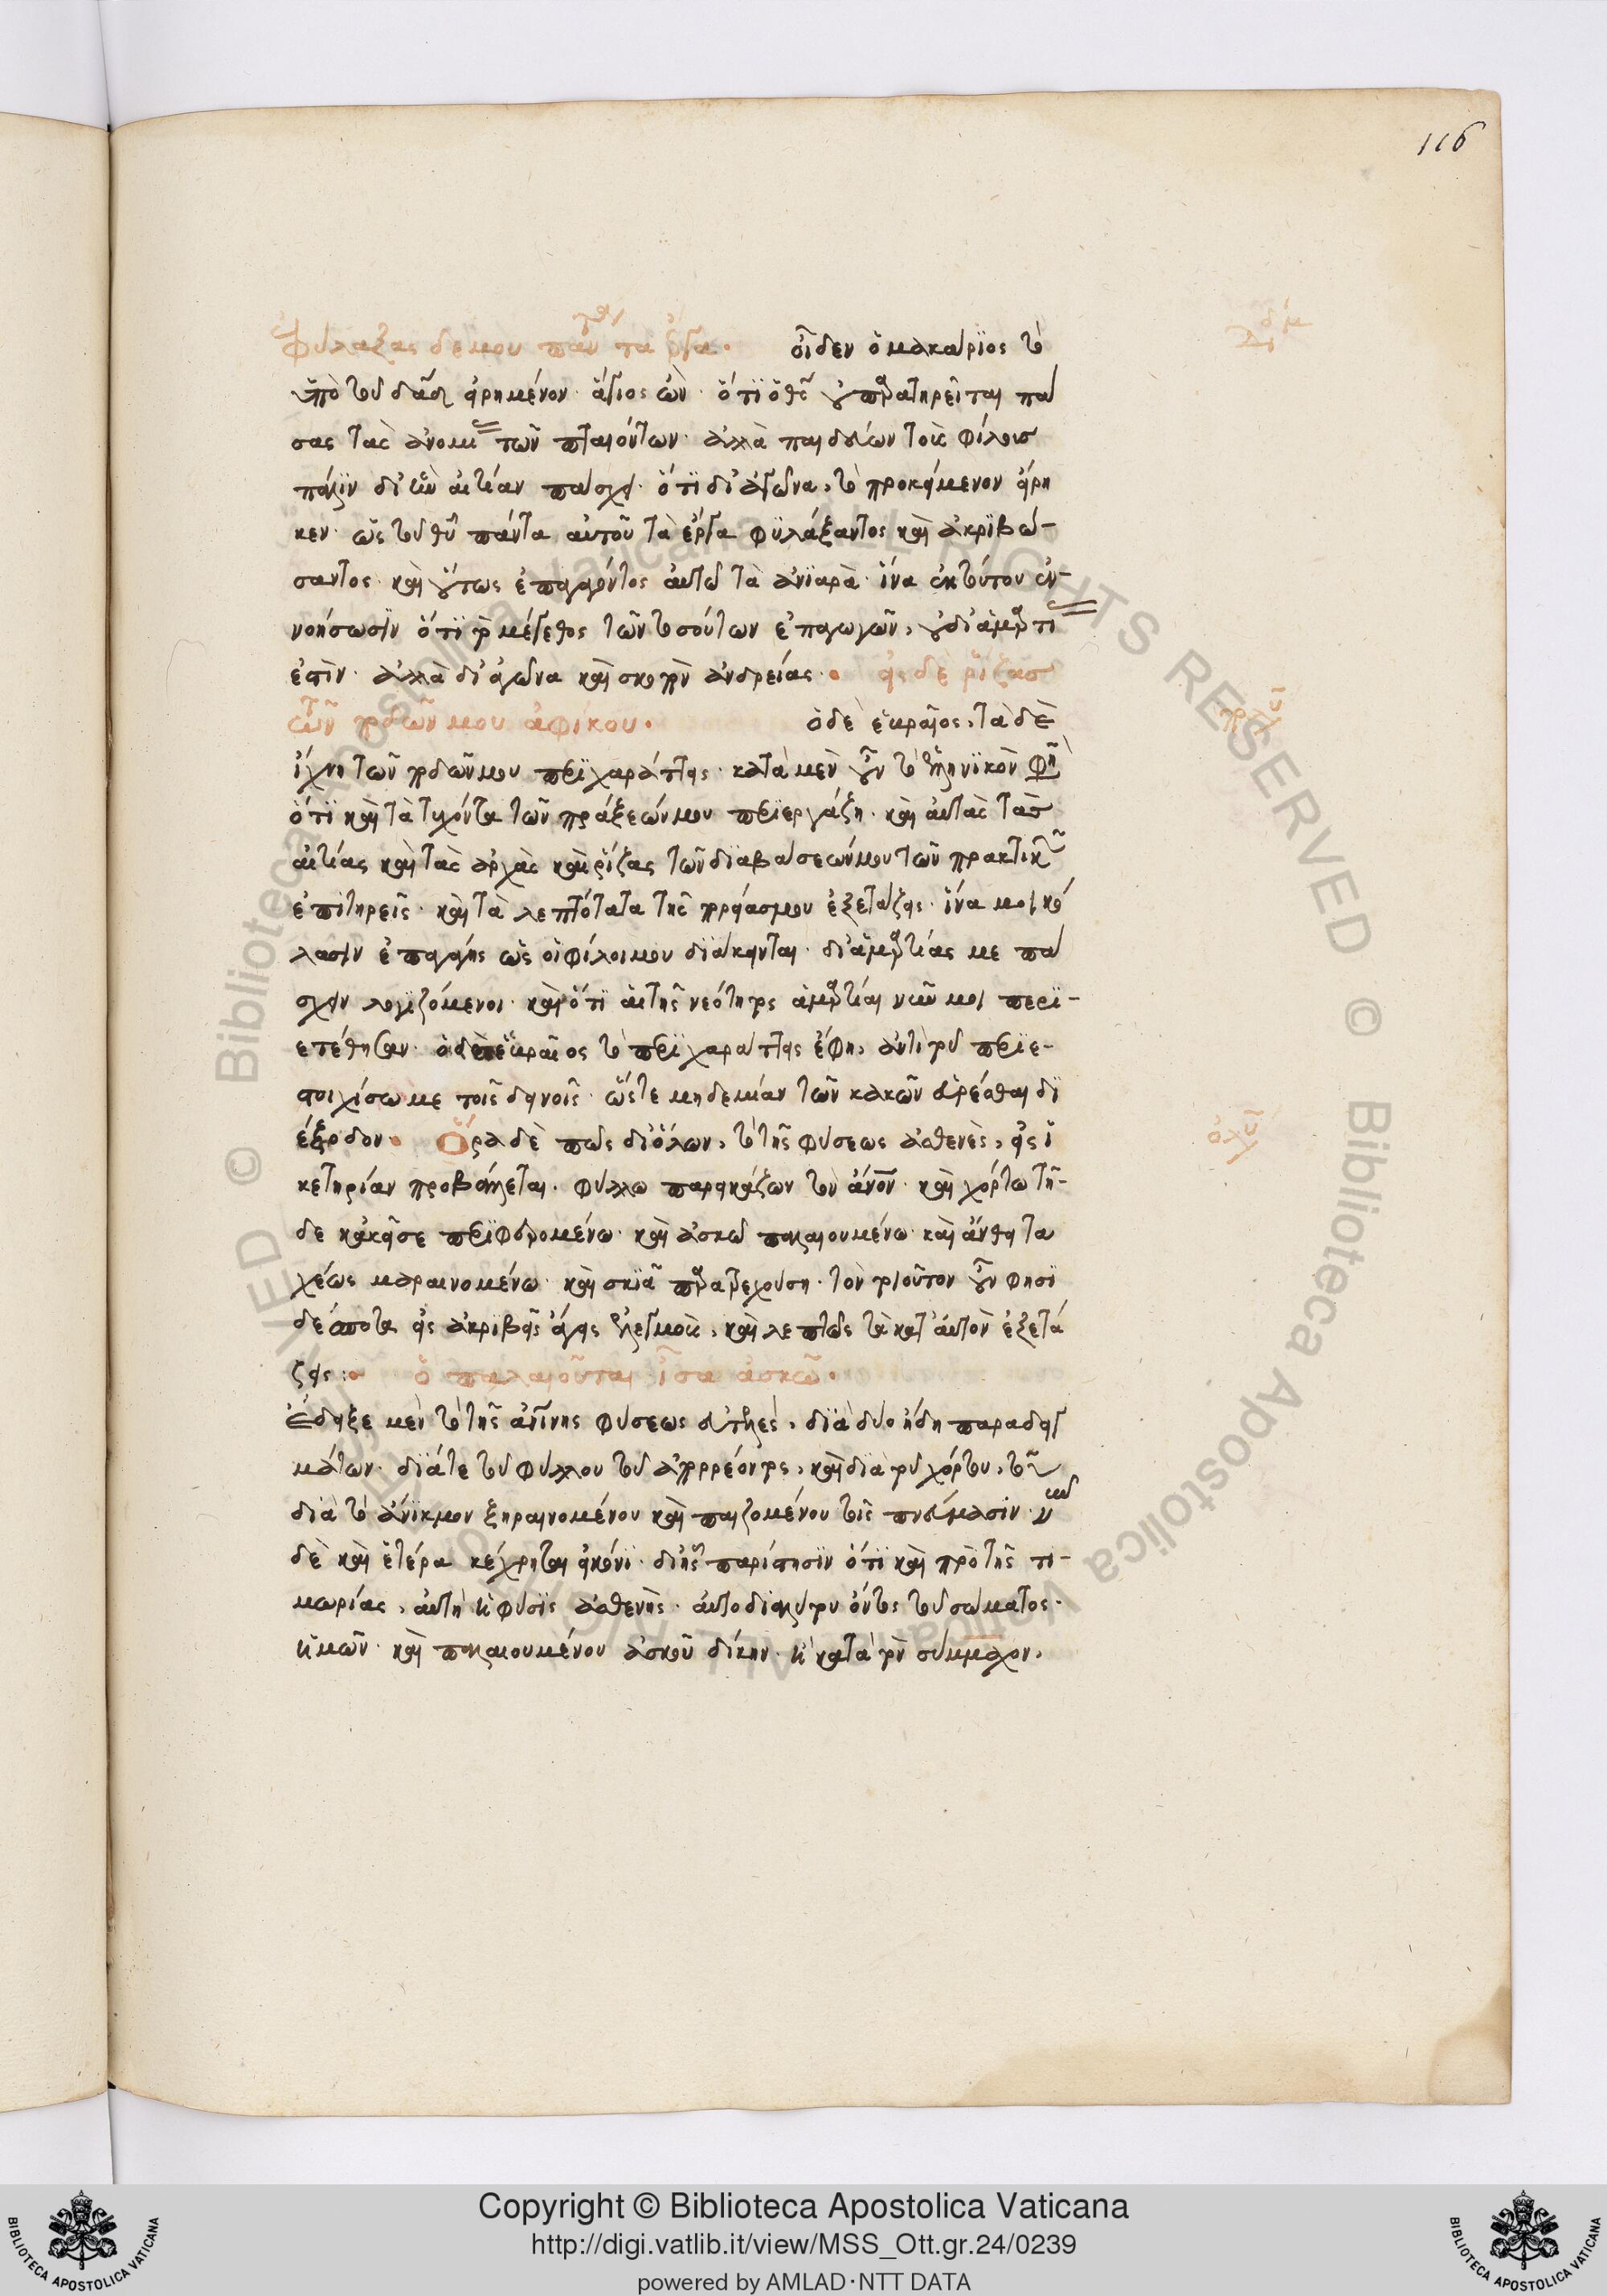 116
Φυλάξας δέ μου πάντα τὰ ἔργα· οἶδεν ὁ μακάριος τὸ
ὑπὸ τοῦ δαδ εἰρημένον· ἅγιος ὢν· ὅτι ὁ θς οὐ παρατηρεῖται πά
σας τὰς ἀνομι τῶν πταιόντων· ἀλλὰ παιδεύων τοὺς φίλους
πάλιν δι' ἣν αἰτίαν πάσχει· ὅτι δι' ἀγῶνα, τὸ προκείμενον εἴρη
κεν· ὡς τοῦ θυ πάντα αὐτοῦ τὰ ἔργα φυλάξαντος καὶ ἀκριβώ-
σαντος· καὶ οὕτως ἐπαγαγόντος αὐτῷ τὰ ἀνιαρά· ἵνα ἐκ τούτου ἐν-
νοήσωσιν ὅτι τὸ μέγεθος τῶν τοσούτων ἐπαγωγῶν, οὐ δι' ἁμαρτι
ἐστὶν· ἀλλὰ δι' ἀγῶνα καὶ σκοπὸν ἀνδρείας· εἰς δὲ ῥίζας
τῶν ποδῶν μου ἀφίκου· ὁ δὲ ἑβραῖος, τὰ δὲ
ἴχνη τῶν ποδῶν μου περιχαράττεις· κατὰ μὲν οὖν τὸ ἑλληνικὸν φη
ὅτι καὶ τὰ τυχόντα τῶν πράξεών μου περιεργάζῃ· καὶ αὐτὰς τὰς
αἰτίας καὶ τὰς ἀρχὰς καὶ ῥίζας τῶν διαβάσεών μου τῶν πρακτικ
ἐπιτηρεῖς· καὶ τὰ λεπτότατα τῆς πορείας μου ἐξετάζεις· ἵνα μοι κό
λασιν ἐπαγάγῃς ὡς οἱ φίλοι μου διάκεινται· δι' ἁμαρτίας με πά
σχειν λογιζόμενοι· καὶ ὅτι αἱ τῆς νεότητος ἁμαρτίαι νῦν μοι περι-
ετέθησαν· ὁ δὲ ἑβραῖος τὸ περιχαράττεις ἔφη, ἀντὶ τοῦ περιε-
στοίχισά με τοῖς δεινοῖς· ὥστε μηδεμίαν τῶν κακῶν εὑρέσθαι δι
έξοδον· Ὅρα δὲ πῶς δι' ὅλων, τὸ τῆς φύσεως ἀσθενὲς, εἰς ἱ
κετηρίαν προβάλλεται· φύλλῳ παρεικάζων τὸν ἄνον· καὶ χόρτῳ τῇ-
δε κἀκεῖσε περιφερομένῳ· καὶ ἀσκῷ παλαιουμένῳ· καὶ ἄνθει τα
χέως μαραινομένῳ· καὶ σκιᾷ παρατρεχούσῃ· τὸν τοιοῦτον οὖν φησὶ
δέσποτα εἰς ἀκριβεῖς ἄγεις ἐλεγμοὺς, καὶ λεπτῶς τὰ κατ' αὐτὸν ἐξετά
ζεις: ὃ παλαιοῦται ἴσα ἀσκῷ·
Ἔδειξε μὲν τὸ τῆς ἀνίνης φύσεως εὐτελὲς, διὰ δύο ἤδη παραδειγ
μάτων· διά τε τοῦ φύλλου τοῦ ἀπορρέοντος, καὶ διὰ τοῦ χόρτου, τοῦ
διὰ τὸ ἄνικμον ξηραινομένου καὶ παιζομένου τοῖς πνεύμασιν· νῦν
δὲ καὶ ἑτέρᾳ κέχρηται εἰκόνι· δι' ἧς παρίστησιν ὅτι καὶ πρὸ τῆς τι-
μωρίας, αὐτὴ ἡ φύσις ἀσθενὴς· εὐτοδιαλύτου ὄντος τοῦ σώματος·
ἡμῶν· καὶ παλαιουμένου ἀσκοῦ δίκην· ἢ κατὰ τὸν σύμμαχον,